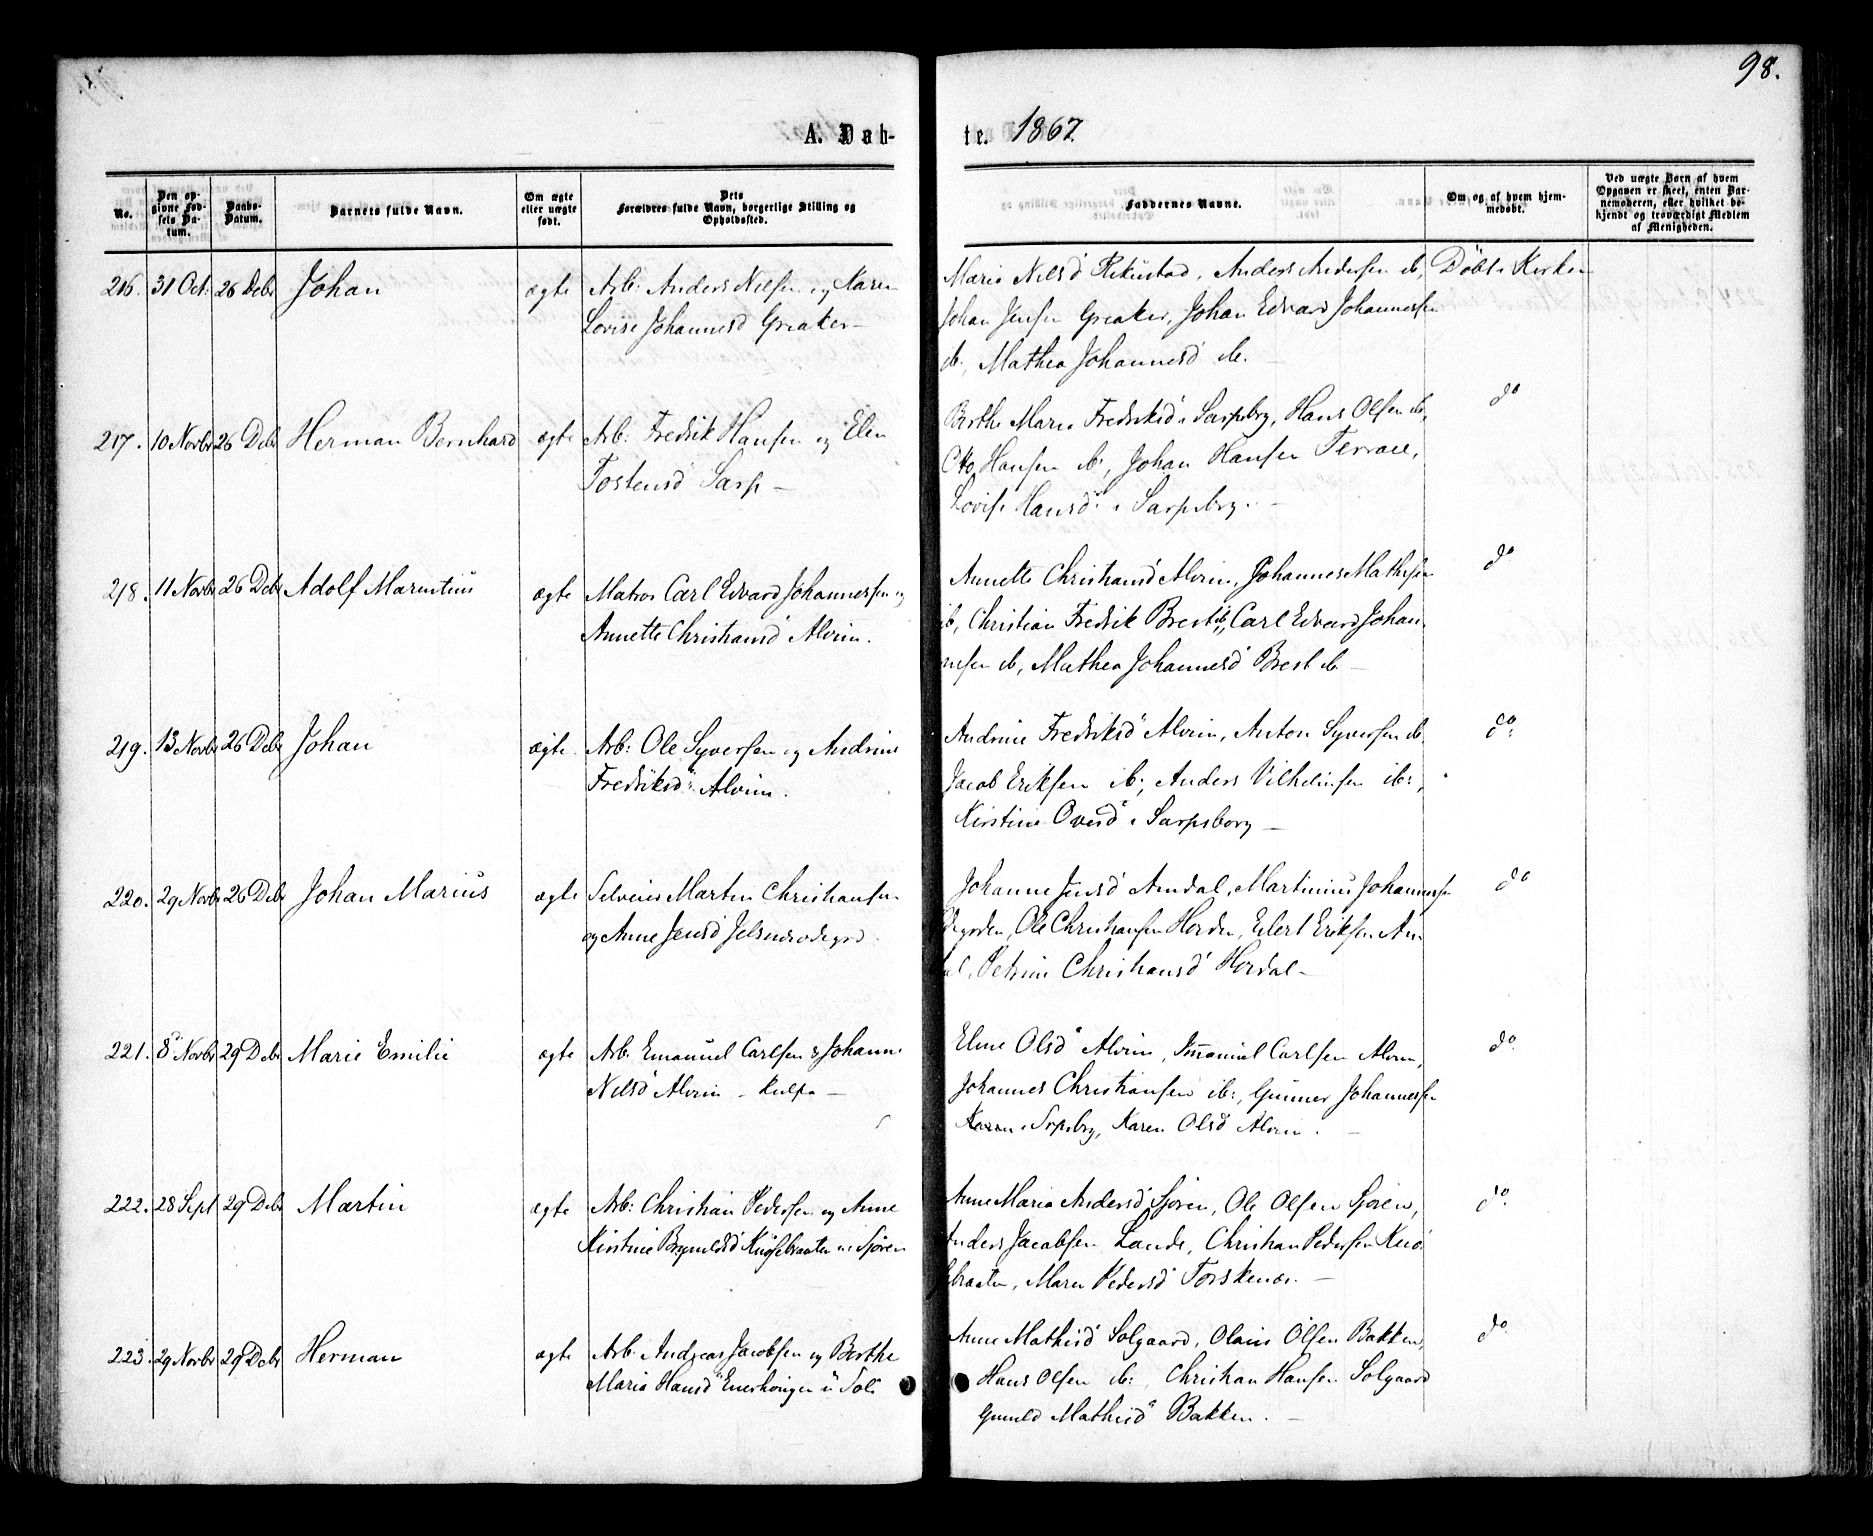 98.
A. Døb-
te. 1867
No.
Den op-
givne Fød-
sels Da-
tum.
Daabs-
Datum.
Barnets fulde Navn.
Om ægte
eller uægte
født.
Dets
Forældres fulde Navn, borgerlige Stilling og
Opholdssted.
Faddernes Navne.
Om og af hvem hjem-
medøbt.
Ved uægte Børn af hvem
Opgaven er skeet, enten Bar-
nemoderen, eller hvilket be-
kjendt og troværdigt Medlem
af Menigheden.
216. 31 Oct: 26 Debr Johan ægte Arb: Anders Nilsen og Karen
Lovise Johannesd Greaker —
Maria Nilsd Anders Andersen ib, Døbt i Kirken
Johan Jensen Greaker, Johan Edvard Johannessen
ib, Mathea Johannesd ib. —
217. 10 Novbr 26 Debr Herman Bernhard ægte Arb: Fredrik Hansen og Elen
Tostensd Sarp —
Berthe Maria Fredriksd i Sarpsbrg, Hans Olsen ib, do
Otto Hansen ib, Johan Hansen Terrace,
Lovise Hansd i Sarpsbrg. —
218. 11 Novbr 26 Debr Adolf Marentius ægte Matros Carl Edvard Johannessen og
Annette Christiansd Alvim.
Annette Christiansd Alvim, Johannes Mathisen do
ib, Christian Fredrik Brest ib, Carl Edvard Johan
nesen ib, Mathea Johannesd Brest ib —
219. 13 Novbr 26 Debr Johan ægte Arb: Ole Syversen og Andrine
Fredriksd Alvim.
Andrine Fredriksd Alvim, Anton Syversen ib. do
Jacob Eriksen ib, Anders Vilhelmsen ib:,
Kirstine Ovesd i Sarpsborg —
220. 29 Novbr 26 Debr Johan Marius ægte Selveier Marten Christiansen
og Anne Jensd
Johanne Jensd Amdal, Martinius Johannessen do
Ole Christiansen Eilert Eriksen Am
Petrine Christiansd Hordal —
221. 8 Novbr 29 Debr Marie Emilie ægte Arb. Emanuel Carlsen & Johanne
Nilsd Alvim — Kulpa —
Eline Olsd Alvim, Immaniel Carlsen Alvim, do
Johannes Christiansen ib:, Gunner Johannessen
Karen Olsd Alvim. —
222. 28 Sept 29 Debr Martin ægte Arb: Christian Pedersen og Anne
Kirstine Brynildsd
Anne Maria Andersd Sjøren, Ole Olsen Sjøren, do
Anders Jacobsen Lande, Christian Pedersen Knø
braaten, Maren Pedersd Torskenæs. —
223. 29 Novbr 29 Debr Herman ægte Arb. Andreas Jacobsen og Berthe
Maria Hansd Enerhaugen u Toli
Anne Mathisd Solgaard, Olaus Olsen Bakken, do
Hans Olsen ib:, Christian Hansen Solgaard
Gunild Mathisd Bakken. —